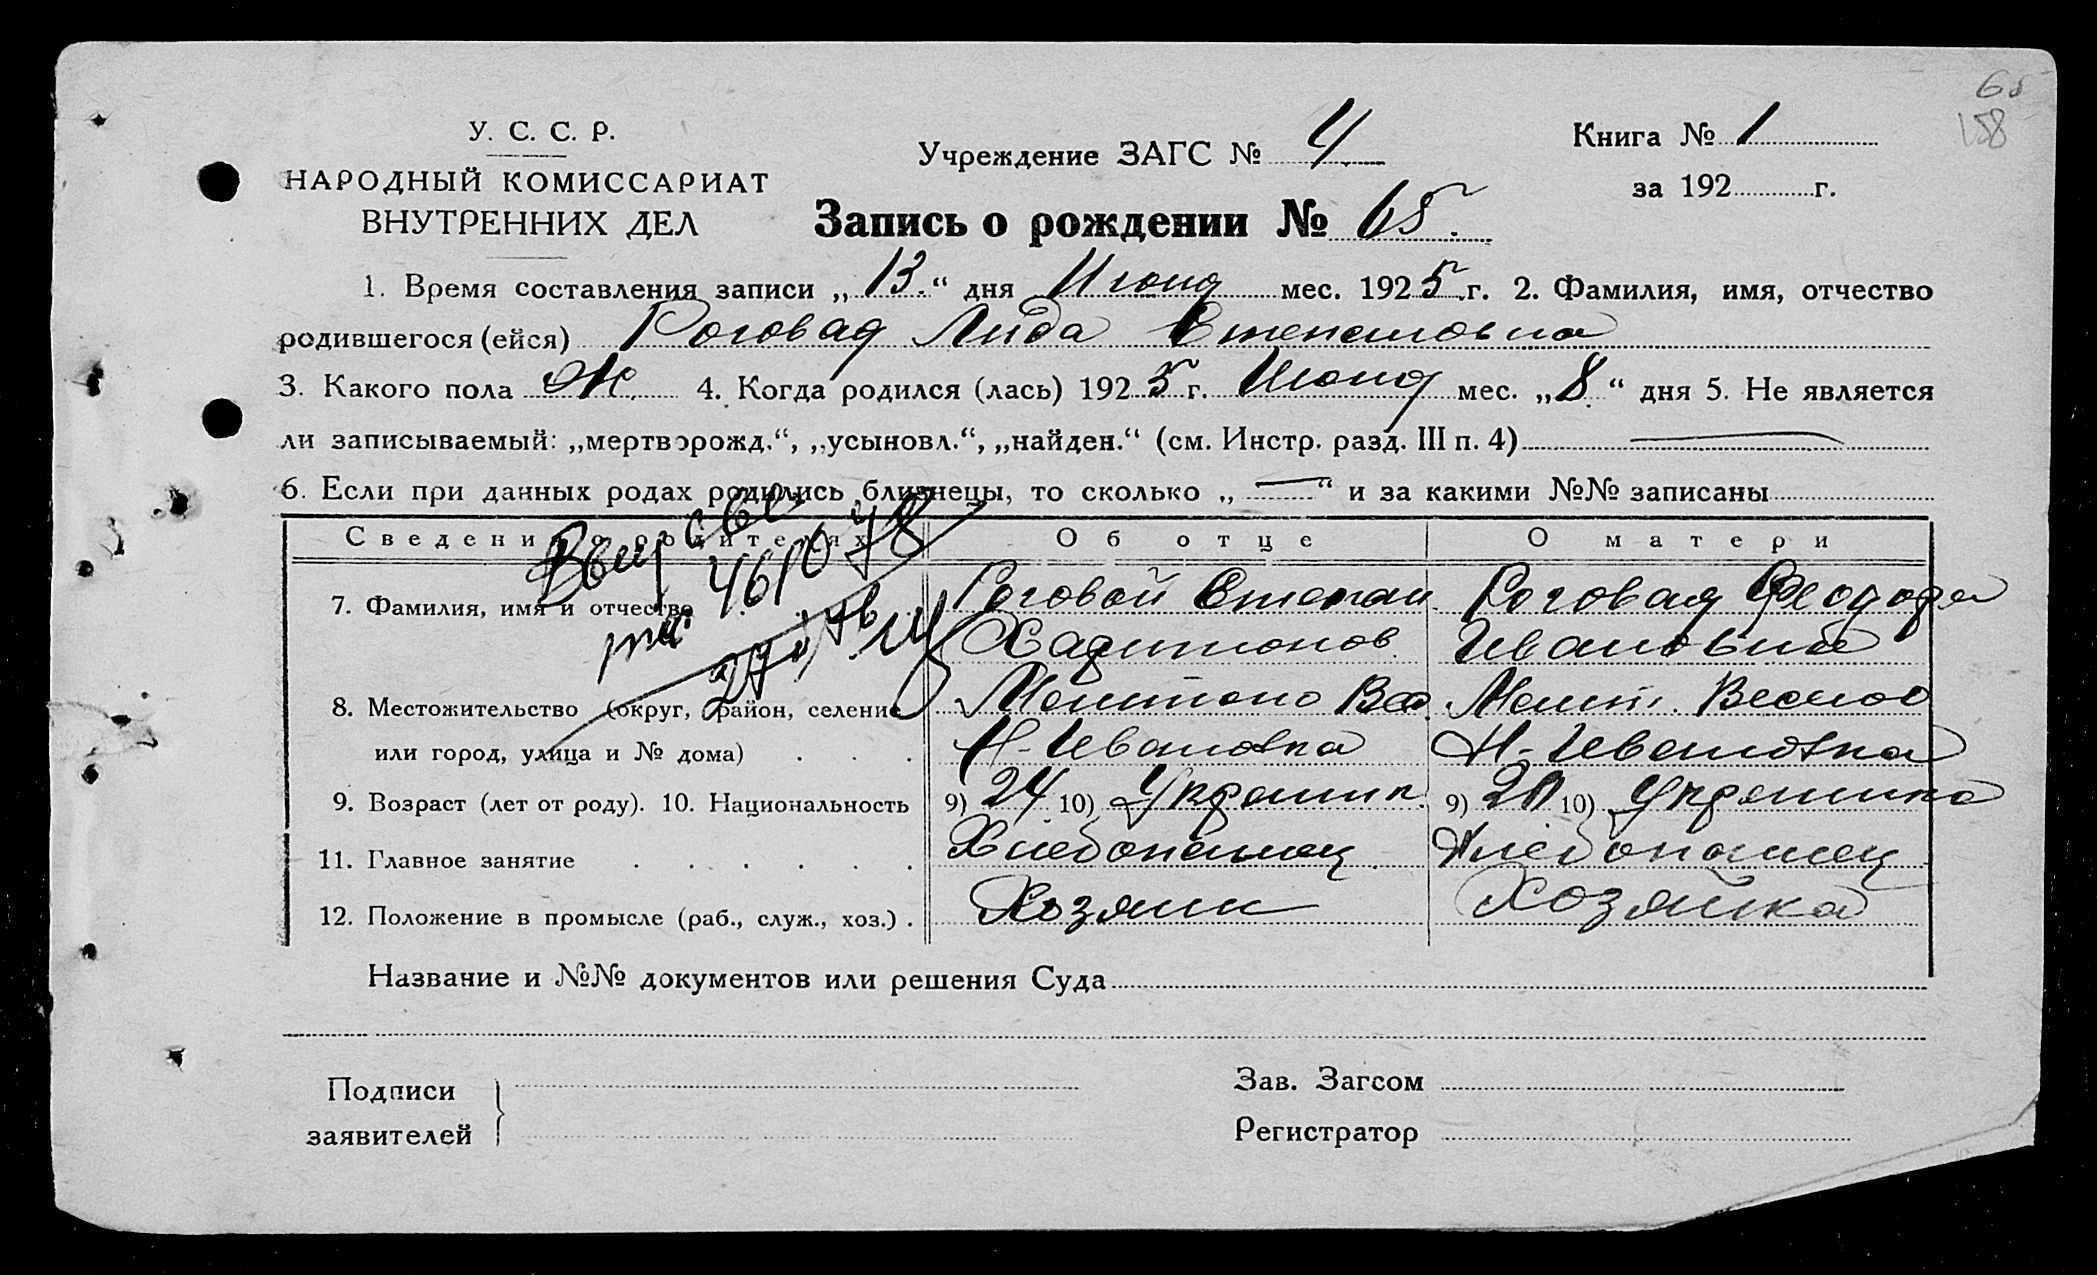 65
158
У. С. С. Р.
НАРОДНЫЙ КОМИССАРИАТ
ВНУТРЕННИХ ДЕЛ
Учреждение ЗАГС № 4
Книга № 1
за 192 г.
Запись о рождении № 65.
1. Время составления записи „ 13. “ дня Июня мес. 192 5 .г. 2. Фамилия, имя, отчество
родившегося (ейся) Роговая Лида Степановна
3. Какого пола Ж. 4. Когда родился (лась) 192 5 г. Июня мес. „ 8 “ дня 5. Не является
ли записываемый: „мертворожд.“, „усыновл.“, „найден.“ (см. Инстр. разд. III п. 4) —
6. Если при данных родах родились близнецы, то сколько „ — “ и за какими №№ записаны
Сведения о родителях Об отце О матери
Выд 461078
7. Фамилия, имя и отчество Роговой Степан Роговая Феодора
Харитонов. Ивановна
8. Местожительство (округ, район, селение
или город, улица и № дома) Н-Ивановка Н-Ивановка
9. Возраст (лет от роду). 10. Национальность 9) 24 10) Украин. 9) 10) Украинка
11. Главное занятие Хлебопашец Хлебопашец
12. Положение в промысле (раб., служ., хоз.) . Хозяин Хозяйка
Название и №№ документов или решения Суда
Подписи
заявителей
Зав. Загсом
Регистратор